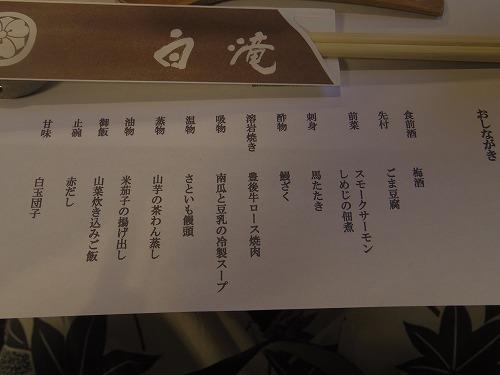 白滝
おしながき
食前酒 梅酒
先付 ごま豆腐
前菜 スモークサーモン
しめじの佃煮
刺身 馬たたき
酢物 鰻ざく
溶岩焼き 豊後牛ロース焼肉
吸物 南瓜と豆乳の冷製スープ
温物 さといも饅頭
蒸物 山芋の茶わん蒸し
油物 米茄子の揚げ出し
御飯 山菜炊き込みご飯
止碗 赤だし
甘味 白玉団子